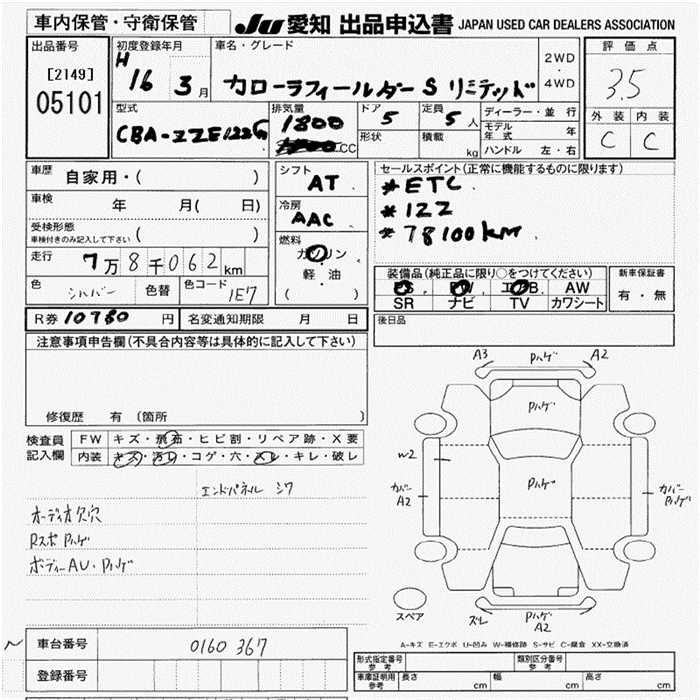 車内保管・守衛保管
JU 愛知 出品申込書 JAPAN USED CAR DEALERS ASSOCIATION
出品番号 初度登録年月 車名・グレード 2WD・4WD 評価点
[2149] H 16 3月 カローラフィールダー S リミテッド 3.5
05101
型式 排気量 ドア 定員 ディーラー・並行 外装 内装
CBA-ZZE122G 1800 CC 5 5人 モデル年式 年 C C
形状 積載 kg ハンドル 左・右
車歴 自家用・( ) シフト AT セールスポイント(正常に機能するものに限ります)
車検 年 月( 日) 冷房 AAC *ETC
*122
受検形態 車検付きのみ記入して下さい ( ) 燃料 ガソリン・軽・油 ( ) *78100km
走行 7万8千062km
色 シルバー 色替 色コード 1E7
装備品(純正品に限り○をつけてください) 新車保証書
PS PW エアB AW 有・無
SR ナビ TV カワシート
R券 10780 円 名変通知期限 月 日 後日品
注意事項申告欄(不具合内容等は具体的に記入して下さい)
修復歴 有 〔箇所 〕
検査員記入欄 FW キズ・飛石・ヒビ割・リペア跡・X要
内装 キズ・汚レ・コゲ・穴・スレ・キレ・破レ
エンドパネル シワ
オーディオ欠穴
Rスポ Pハゲ
ボディーAU・Pハゲ
A3 Pハゲ A2
Pハゲ
W2
Pハゲ
カバー A2
カバー Pハゲ
スペア
ズレ Pハゲ A2
A-キズ E-エクボ U-凹み W-補修跡 S-サビ C-腐食 XX-交換済
車台番号 0160367
登録番号
形式指定番号 参考 類別区分番号 参考
車庫証明用 参考 長さ cm 幅 cm 高さ cm